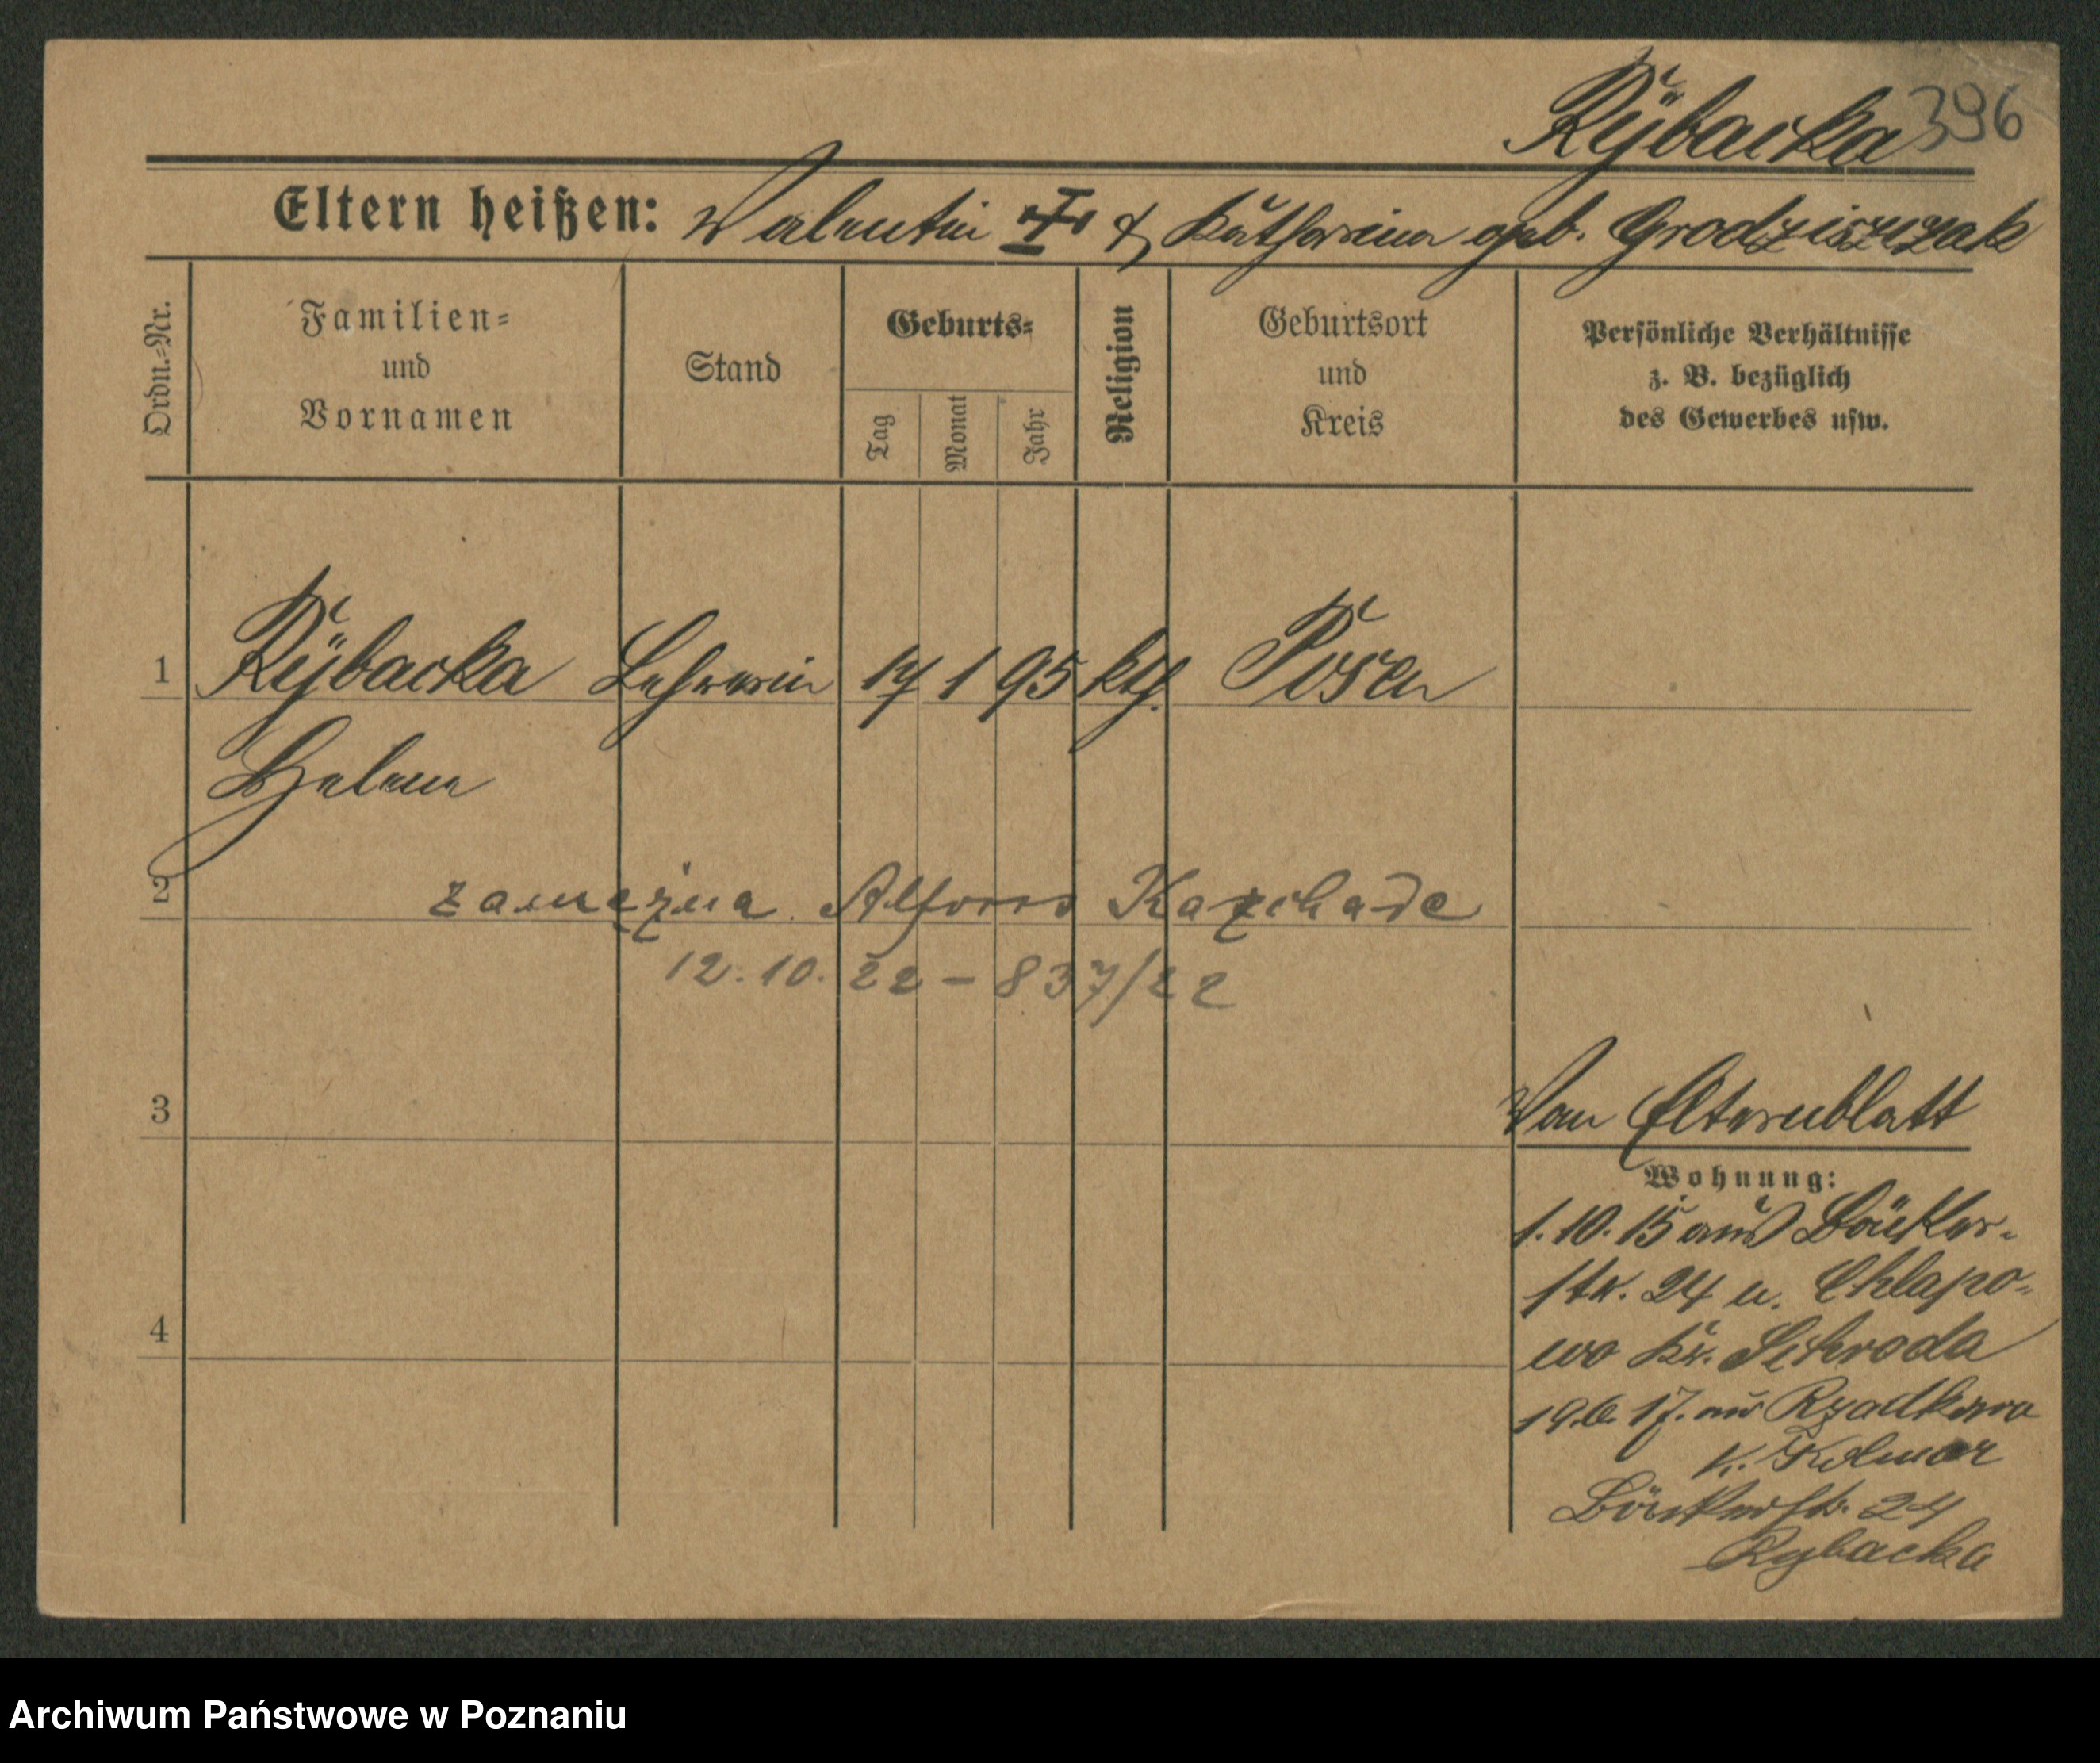 Rÿbacka 396
Eltern heißen: Valentin † & Katharina geb. Grodziszczak
Ordn.-Nr.
Familien- und Vornamen
Stand
Geburts-
Tag
Monat
Jahr
Religion
Geburtsort und Kreis
Persönliche Verhältnisse
z. B. bezüglich
des Gewerbes usw.
1 Rÿbacka Lehrerin 17 1 95 kth. Posen
Helene
2 zamężna Alfons
12.10.22 – 837/22
3
Vom Elternblatt
Wohnung:
1.10.15 aus Bäcker-
str. 24 n. Chlapo-
4
wo Kr. Schroda
19.6.17. aus Rzadkowo
K. Kolmar
Bäckerstr. 24
Rybacka
Archiwum Państwowe w Poznaniu